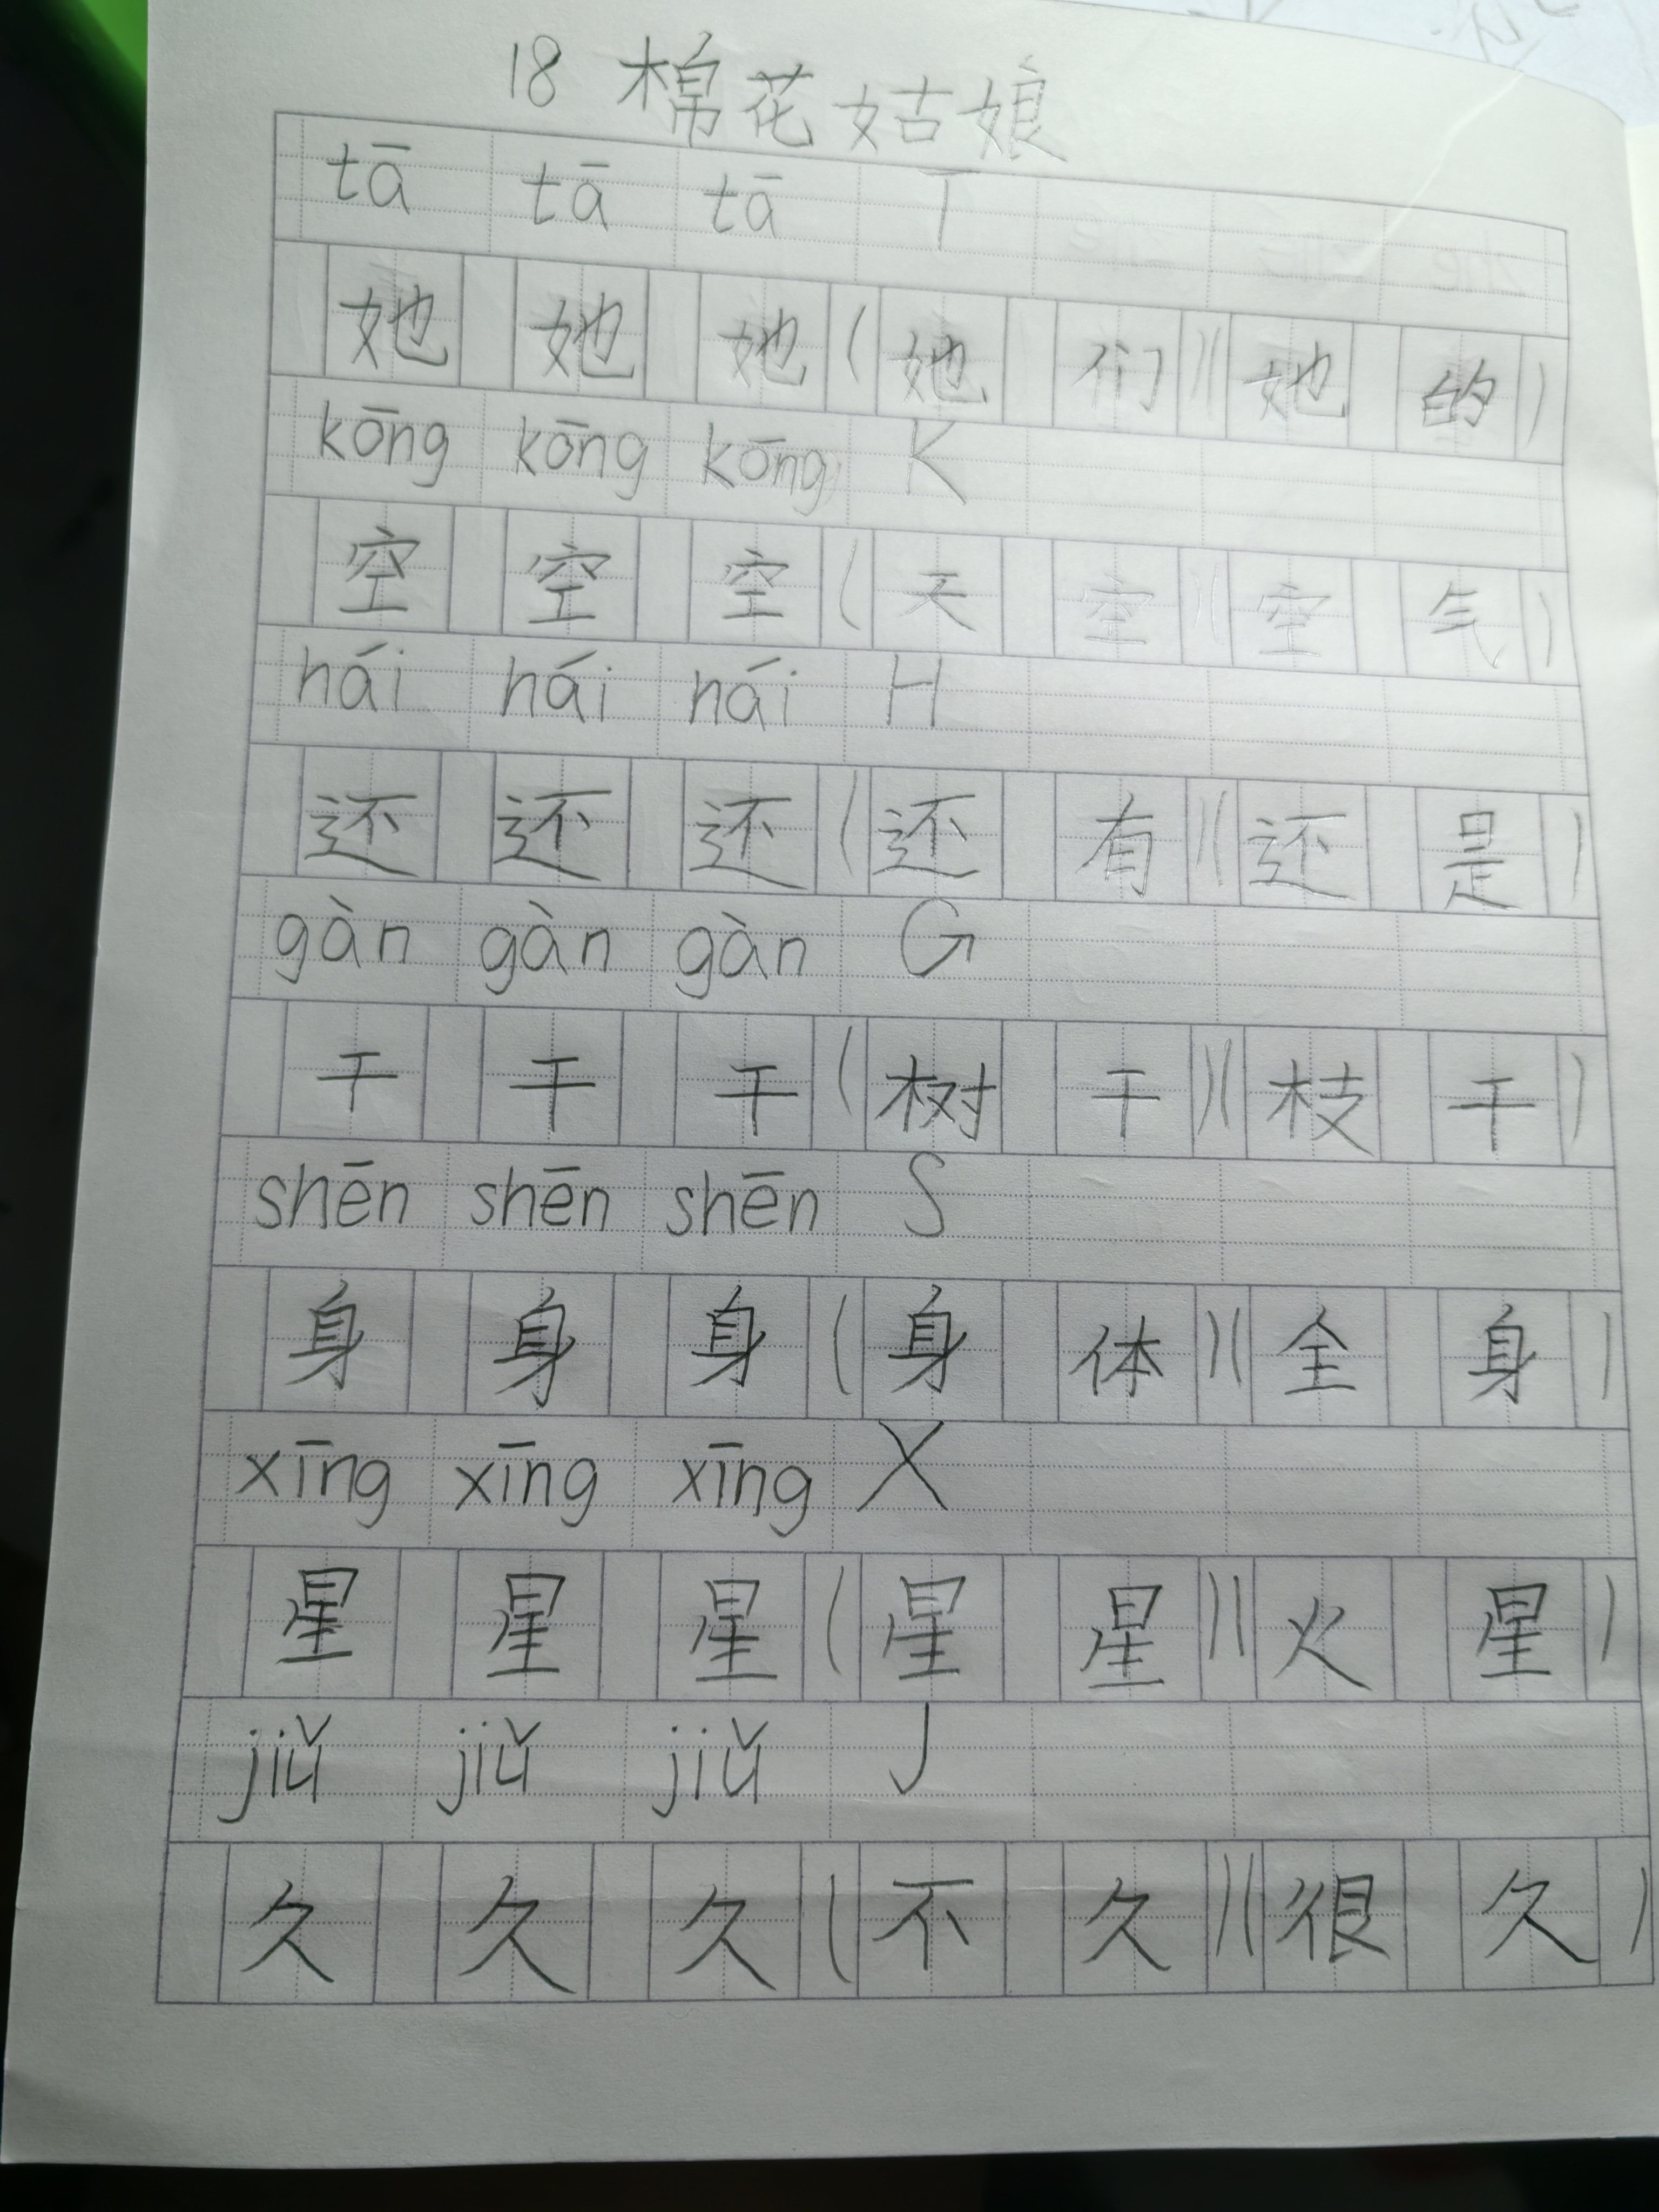 18 棉花姑娘
tā tā tā T
她 她 她 (她 们)(她 的)
kōng kōng kōng K
空 空 空 (天 空)(空 气)
hái hái hái H
还 还 还 (还 有)(还 是)
gàn gàn gàn G
干 干 干 (树 干)(枝 干)
shēn shēn shēn S
身 身 身 (身 体)(全 身)
xīng xīng xīng X
星 星 星 (星 星)(火 星)
jiǔ jiǔ jiǔ J
久 久 久 (不 久)(很 久)